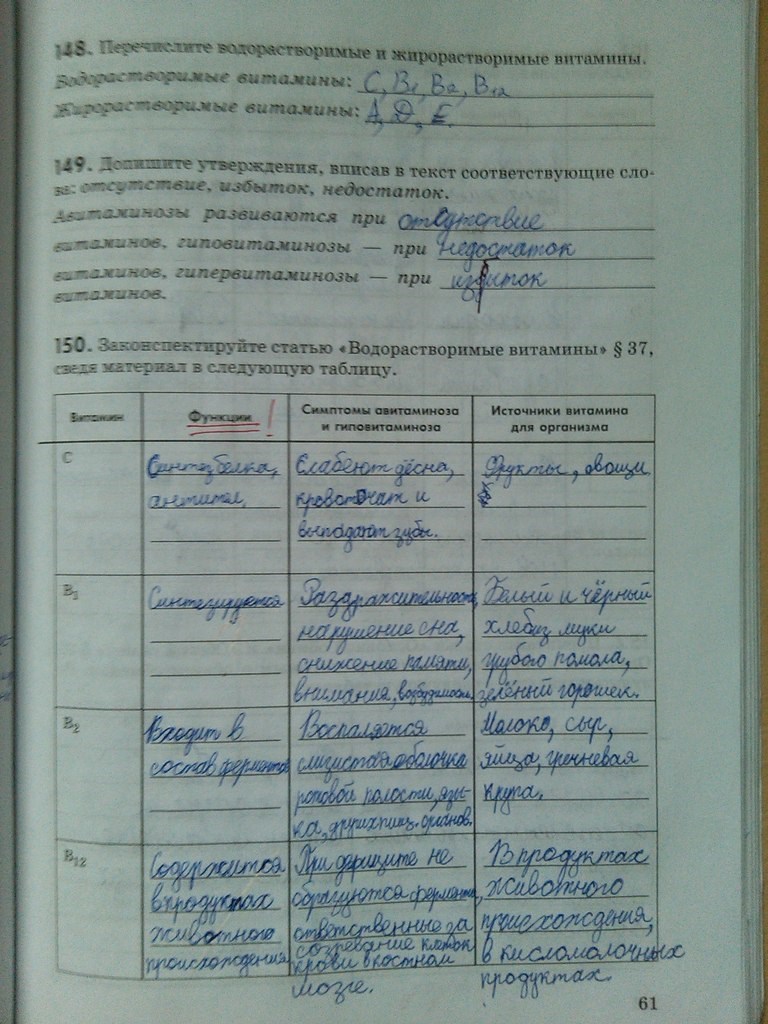 148. Перечислите водорастворимые и жирорастворимые витамины.
Водорастворимые витамины: C, B₁, B₂, B₁₂
Жирорастворимые витамины: A, D, E.
149. Допишите утверждения, вписав в текст соответствующие сло-
ва: отсутствие, избыток, недостаток.
Авитаминозы развиваются при отсутствие
витаминов, гиповитаминозы — при недостаток
витаминов, гипервитаминозы — при избыток
витаминов.
150. Законспектируйте статью «Водорастворимые витамины» § 37,
сведя материал в следующую таблицу.
Витамин
Функции !
Симптомы авитаминоза
и гиповитаминоза
Источники витамина
для организма
C
Синтез белка,
антител.
Слабеют дёсна,
кровоточат и
выпадают зубы.
Фрукты, овощи.
B₁
Синтезируются
Раздражительность,
нарушение сна,
снижение памяти,
внимания, возбудимость.
Белый и чёрный
хлеб из муки
грубого помола,
зелёный горошек.
B₂
Входит в
состав ферментов
Воспаляется
слизистая оболочка
ротовой полости, язы-
ка, других пищ. органов.
Молоко, сыр,
яйца, гречневая
крупа.
B₁₂
Содержится
в продуктах
животного
происхождения
При дефиците не
образуются ферменты,
ответственные за
созревание клеток
крови в костном
мозге.
В продуктах
животного
происхождения,
в кисломолочных
продуктах.
61